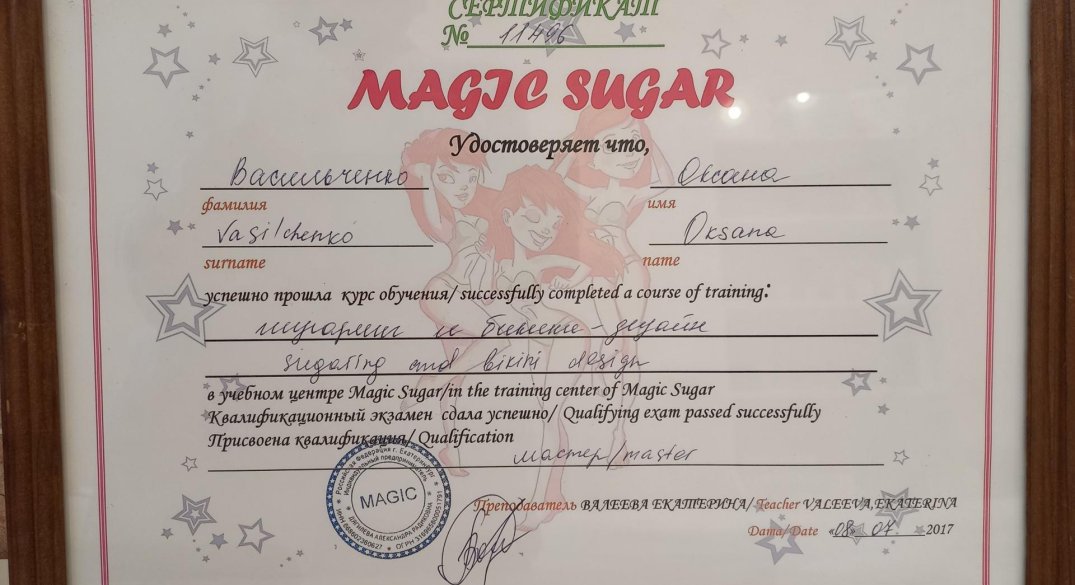 СЕРТИФИКАТ
№ 11496
MAGIC SUGAR
Удостоверяет что,
Васильченко Оксана
фамилия имя
Vasilchenko Oksana
surname name
успешно прошла курс обучения/ successfully completed a course of training:
шугаринг и бикини-дизайн
sugaring and bikini design
в учебном центре Magic Sugar/in the training center of Magic Sugar
Квалификационный экзамен сдала успешно/ Qualifying exam passed successfully
Присвоена квалификация/ Qualification
мастер/master
Российская Федерация г. Екатеринбург
Индивидуальный предприниматель
MAGIC
АЛЕКСАНДРА
ИНН
ОГРН
Преподаватель ВАЛЕЕВА ЕКАТЕРИНА/ Teacher VALEEVA EKATERINA
Дата/ Date «08» 07 2017